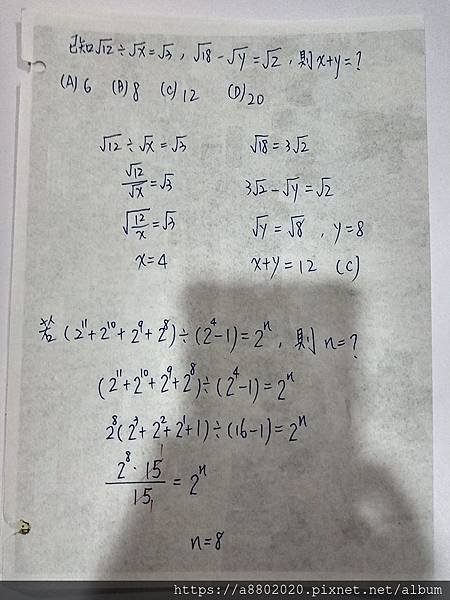 已知√12÷√x=√3, √18-√y=√2, 則x+y=?
(A) 6 (B) 8 (C) 12 (D) 20
√12÷√x=√3
√12/√x=√3
√(12/x)=√3
x=4
√18=3√2
3√2-√y=√2
√y=√8, y=8
x+y=12 (C)
若(2¹¹+2¹⁰+2⁹+2⁸)÷(2⁴-1)=2ⁿ, 則n=?
(2¹¹+2¹⁰+2⁹+2⁸)÷(2⁴-1)=2ⁿ
2⁸(2³+2²+2¹+1)÷(16-1)=2ⁿ
2⁸·15/15=2ⁿ
n=8
https://a8802020.pixnet.net/album